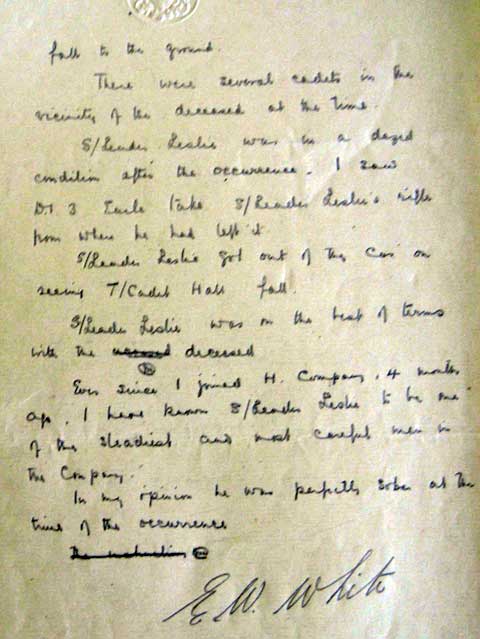 fall to the ground.
There were several cadets in the
vicinity of the deceased at the time.
S/Leader Leslie was in a dazed
condition after the occurrence. I saw
D.I 3 take S/Leader Leslie's rifle
from where he had left it.
S/Leader Leslie got out of the Car on
seeing T/Cadet Hall fall.
S/Leader Leslie was on the best of terms
with the deceased
Ever since I joined H. Company, 4 months
ago, I have known S/Leader Leslie to be one
of the steadiest and most careful men in
the Company.
In my opinion he was perfectly sober at the
time of the occurrence
E. W. White